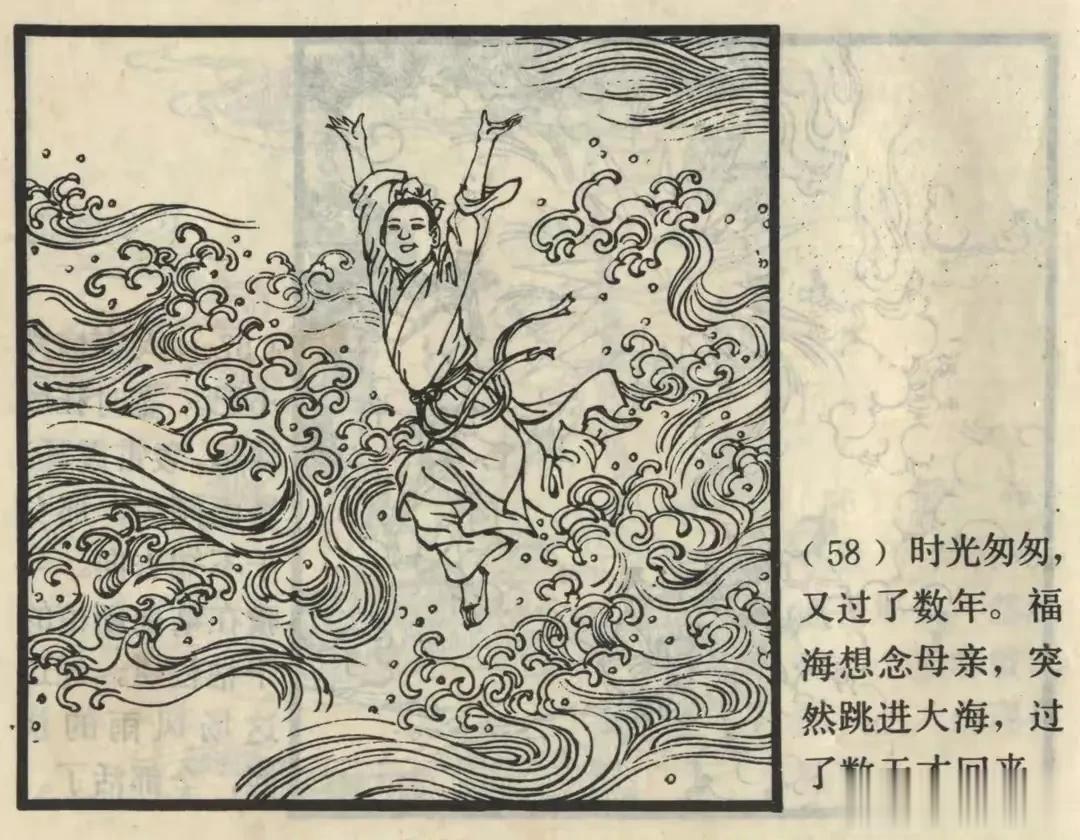 （58）时光匆匆，
又过了数年。福
海想念母亲，突
然跳进大海，过
了数天才回来